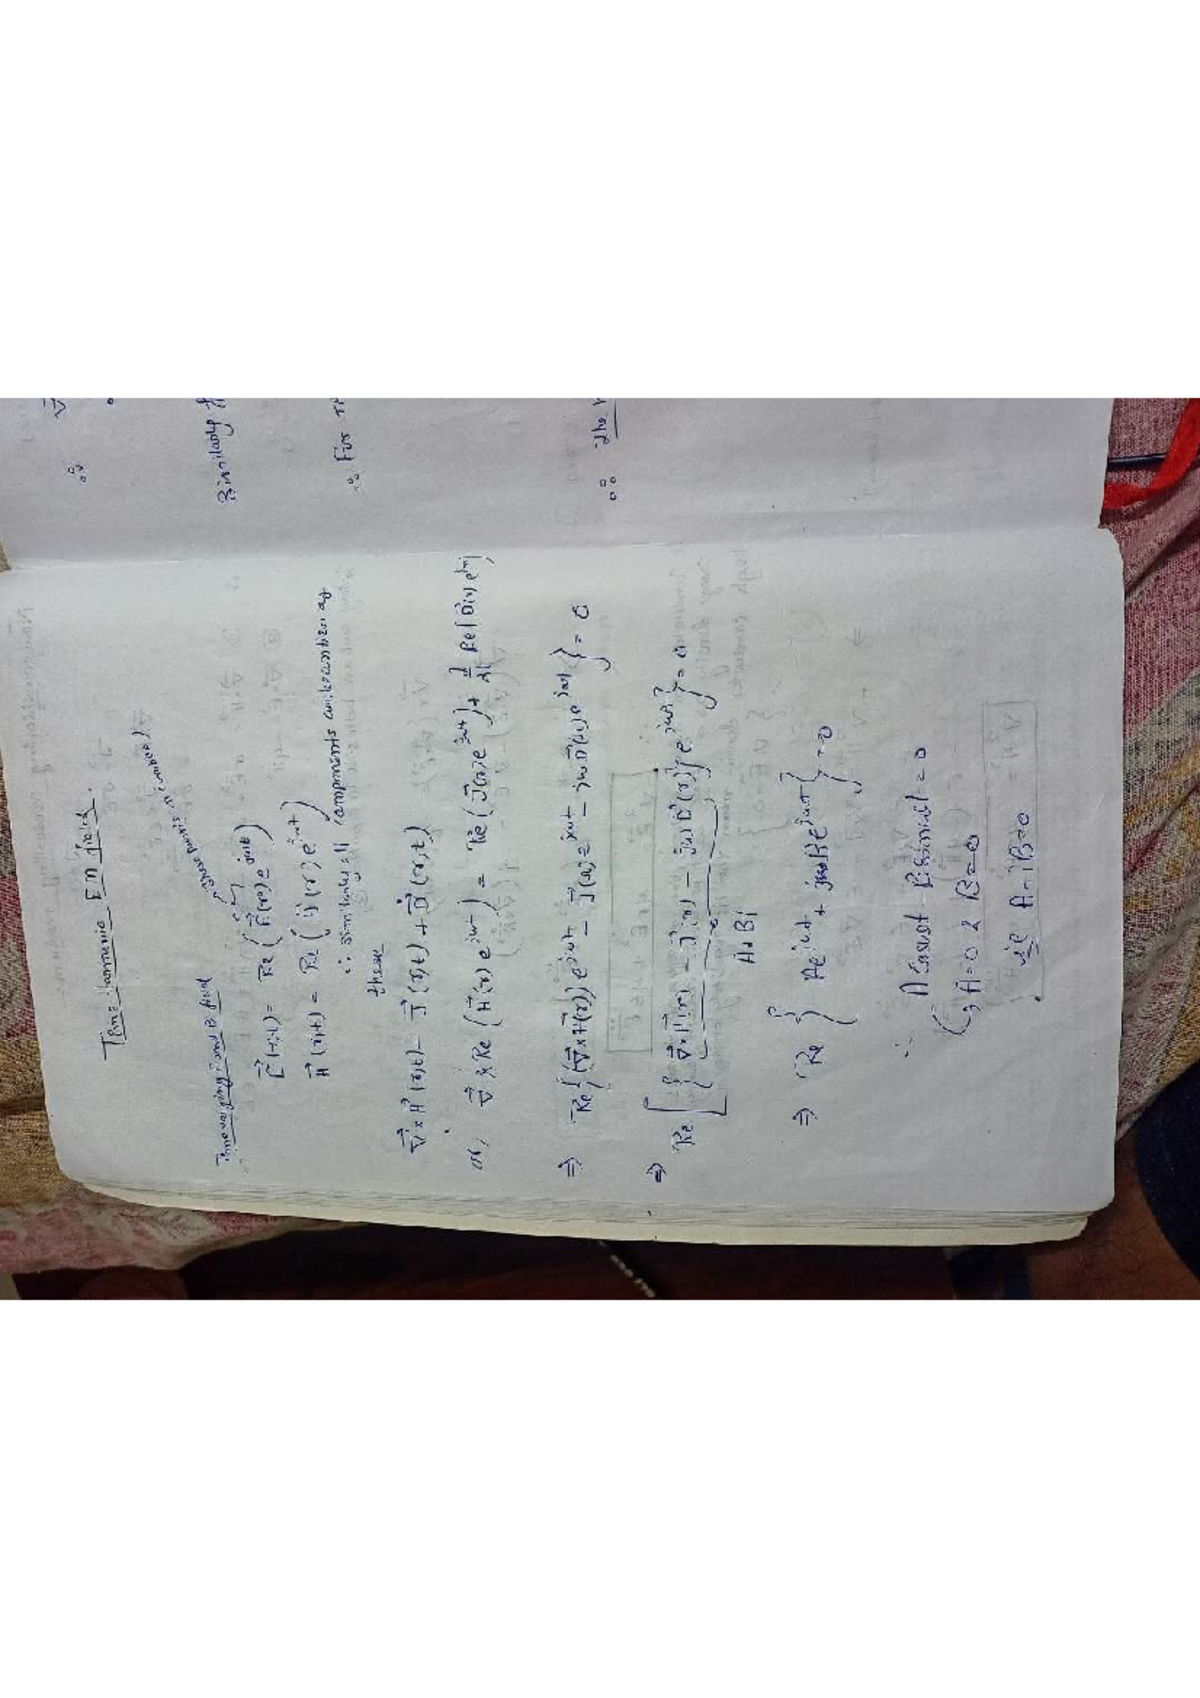 Time Harmonic EM field.
Time varying E and B field
these points is complex
E⃗(r,t) = Re (E⃗(r) e^jωt)
H⃗(r,t) = Re (H⃗(r) e^jωt)
∴ similarly all components can be written as
these
∇⃗×H⃗(r,t) = J⃗(r,t) + D⃗(r,t)
or, ∇⃗ × Re {H⃗(r) e^jωt} = Re (J⃗(r) e^jωt) + d/dt Re [D⃗(r) e^jωt]
⇒ Re {(∇⃗×H⃗(r)) e^jωt − J⃗(r) e^jωt − jωD⃗(r) e^jωt} = 0
⇒ Re [{∇⃗×H⃗(r) − J⃗(r) − jωD⃗(r)} e^jωt] = 0
⇒ Re { Ae^jωt + jBe^jωt } = 0
∴ A cosωt − B sinωt = 0
A=0 & B=0
i.e A+jB=0
∴ ∇⃗
Similarly f
∴ For Ti
∴ The